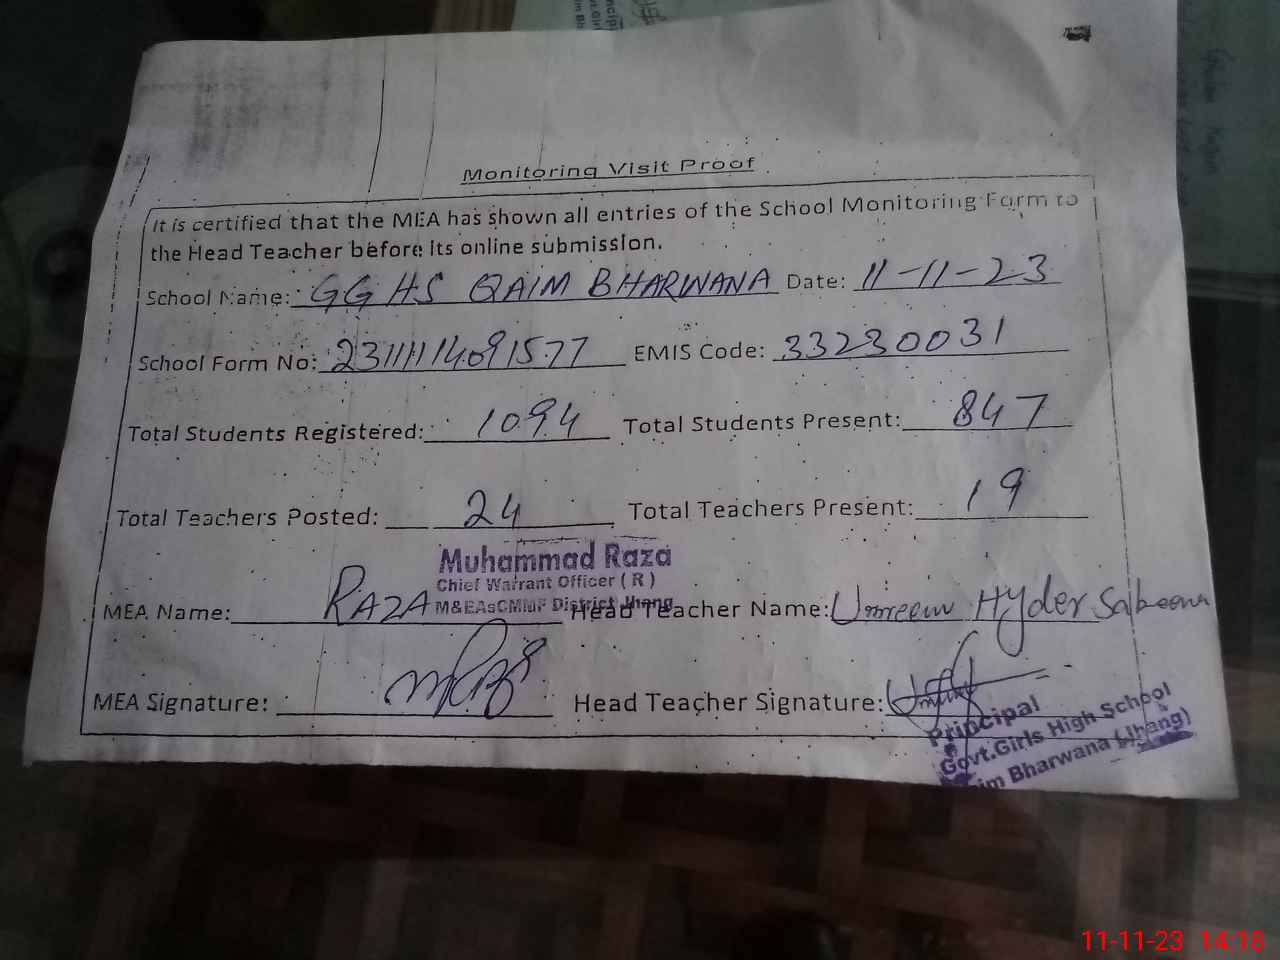 Monitoring Visit Proof
It is certified that the MEA has shown all entries of the School Monitoring Form to
the Head Teacher before its online submission.
School Name: GGHS QAIM BHARWANA Date: 11-11-23
School Form No: 23111114091577 EMIS Code: 33230031
Total Students Registered: 1094 Total Students Present: 847
Total Teachers Posted: 24 Total Teachers Present: 19
Muhammad Raza
Chief Warrant Officer ( R )
M&EAsCMMF District Jhang
MEA Name: RAZA Head Teacher Name: Hyder
MEA Signature: Head Teacher Signature:
Principal
Govt.Girls High School
Bharwana (Jhang)
11-11-23 14:18